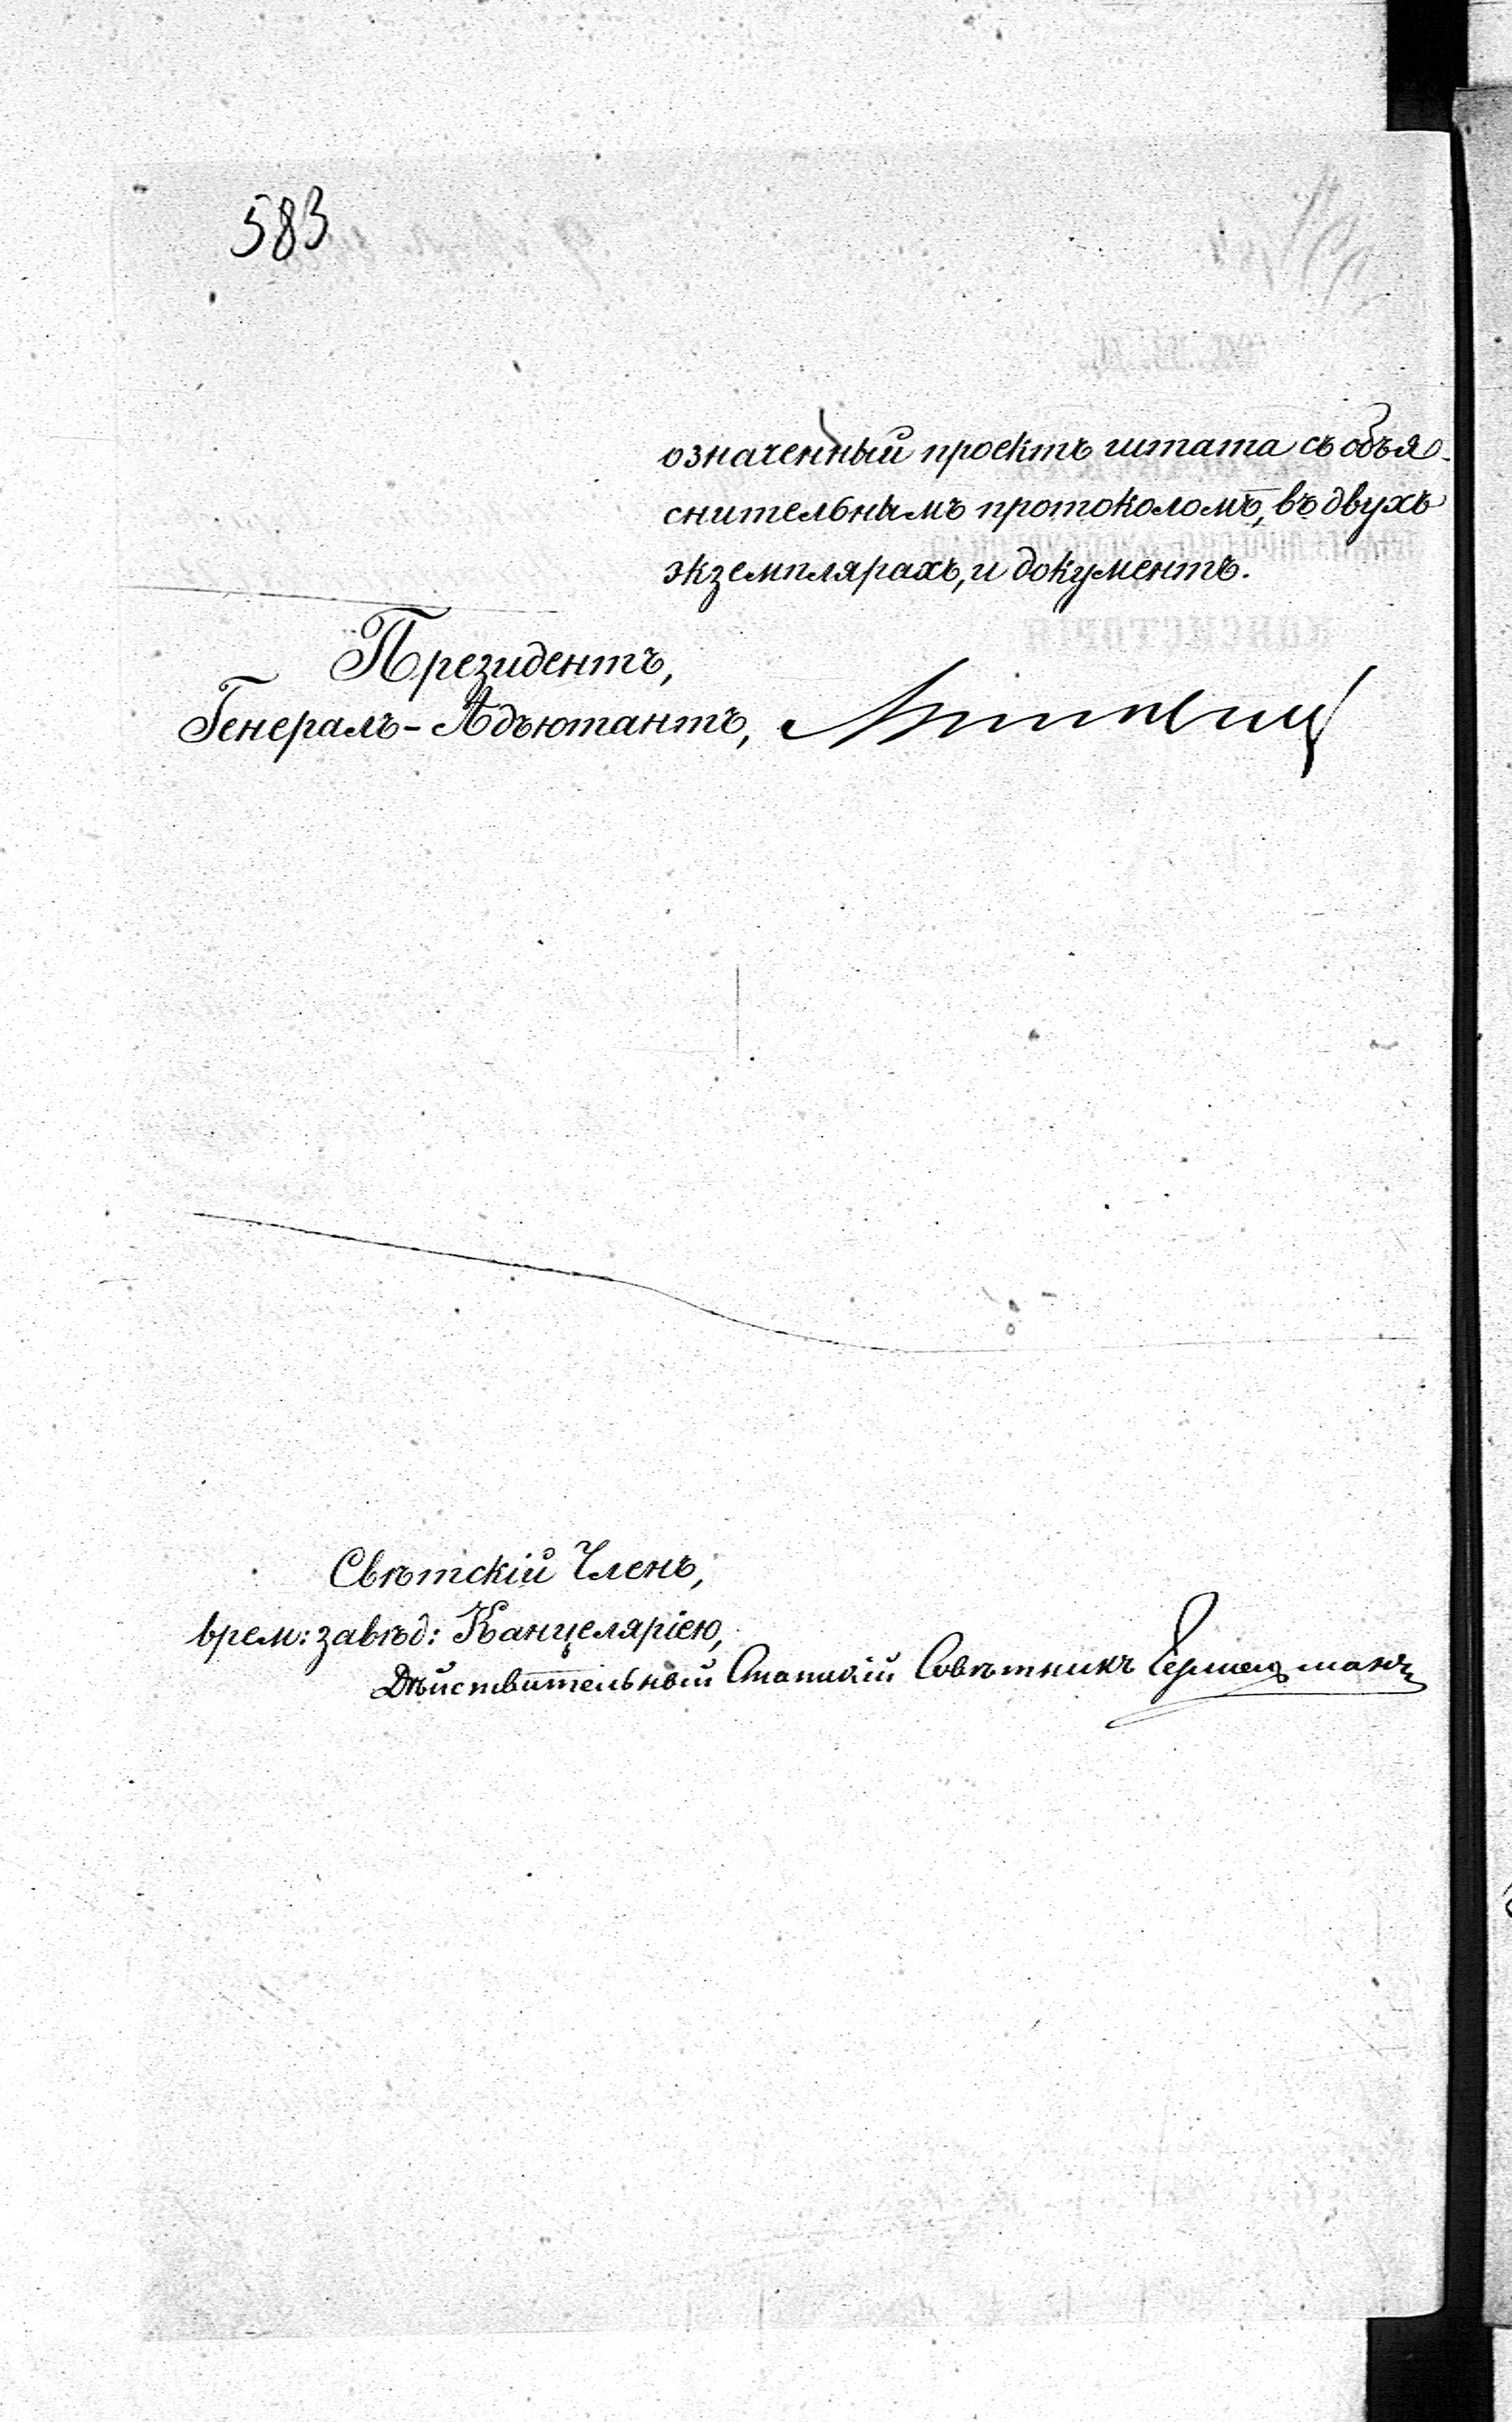 583
означенный проектъ штата съ объя-
снительнымъ протоколомъ, въ двухъ
экземплярахъ, и документъ.
Президентъ,
Генералъ-Адъютантъ,
Свѣтскій Членъ,
врем: завѣд: Канцеляріею,
Дѣйствительный Статскій Совѣтникъ